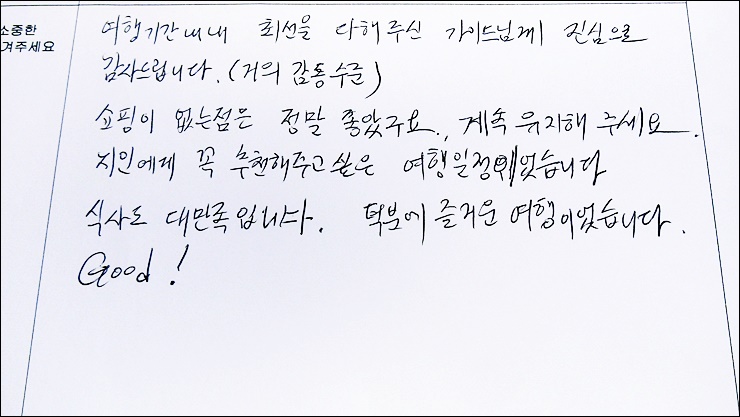 소중한
겨주세요
여행기간내내 최선을 다해주신 가이드님께 진심으로
감사드립니다. (거의 감동수준)
쇼핑이 없는점은 정말 좋았구요., 계속 유지해 주세요.
지인에게 꼭 추천해주고싶은 여행일정이었습니다
식사도 대만족입니다. 덕분에 즐거운 여행이었습니다.
Good!